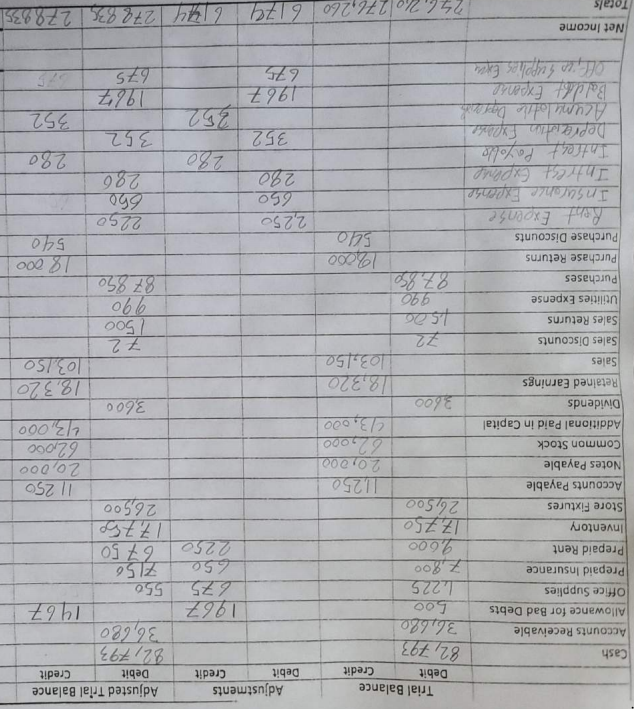 Trial Balance Adjustments Adjusted Trial Balance
Debit Credit Debit Credit Debit Credit
Cash 82,793 82,793
Accounts Receivable 36,680 36,680
Allowance for Bad Debts 500 1967 1467
Office Supplies 1,225 675 550
Prepaid Insurance 7,800 650 7150
Prepaid Rent 9,000 2250 6750
Inventory 17,750 17,750
Store Fixtures 26,500 26,500
Accounts Payable 11,250 11250
Notes Payable 20,000 20,000
Common Stock 62,000 62,000
Additional Paid in Capital 43,000 43,000
Dividends 3600 3600
Retained Earnings 18,320 18,320
Sales 103,150 103,150
Sales Discounts 72 72
Sales Returns 1,500 1500
Utilities Expense 990 990
Purchases 87,850 87,850
Purchase Returns 18,000 18,000
Purchase Discounts 540 540
Rent Expense 2,250 2250
Insurance Expense 650 650
Intrest Expense 280 280
Intrest Payable 280 280
Depreation Expense 352 352
352 352
Bad debt Expense 1967 1967
Supplies 675 675 675
Net Income
Totals 276,260 6174 278,835 278,835